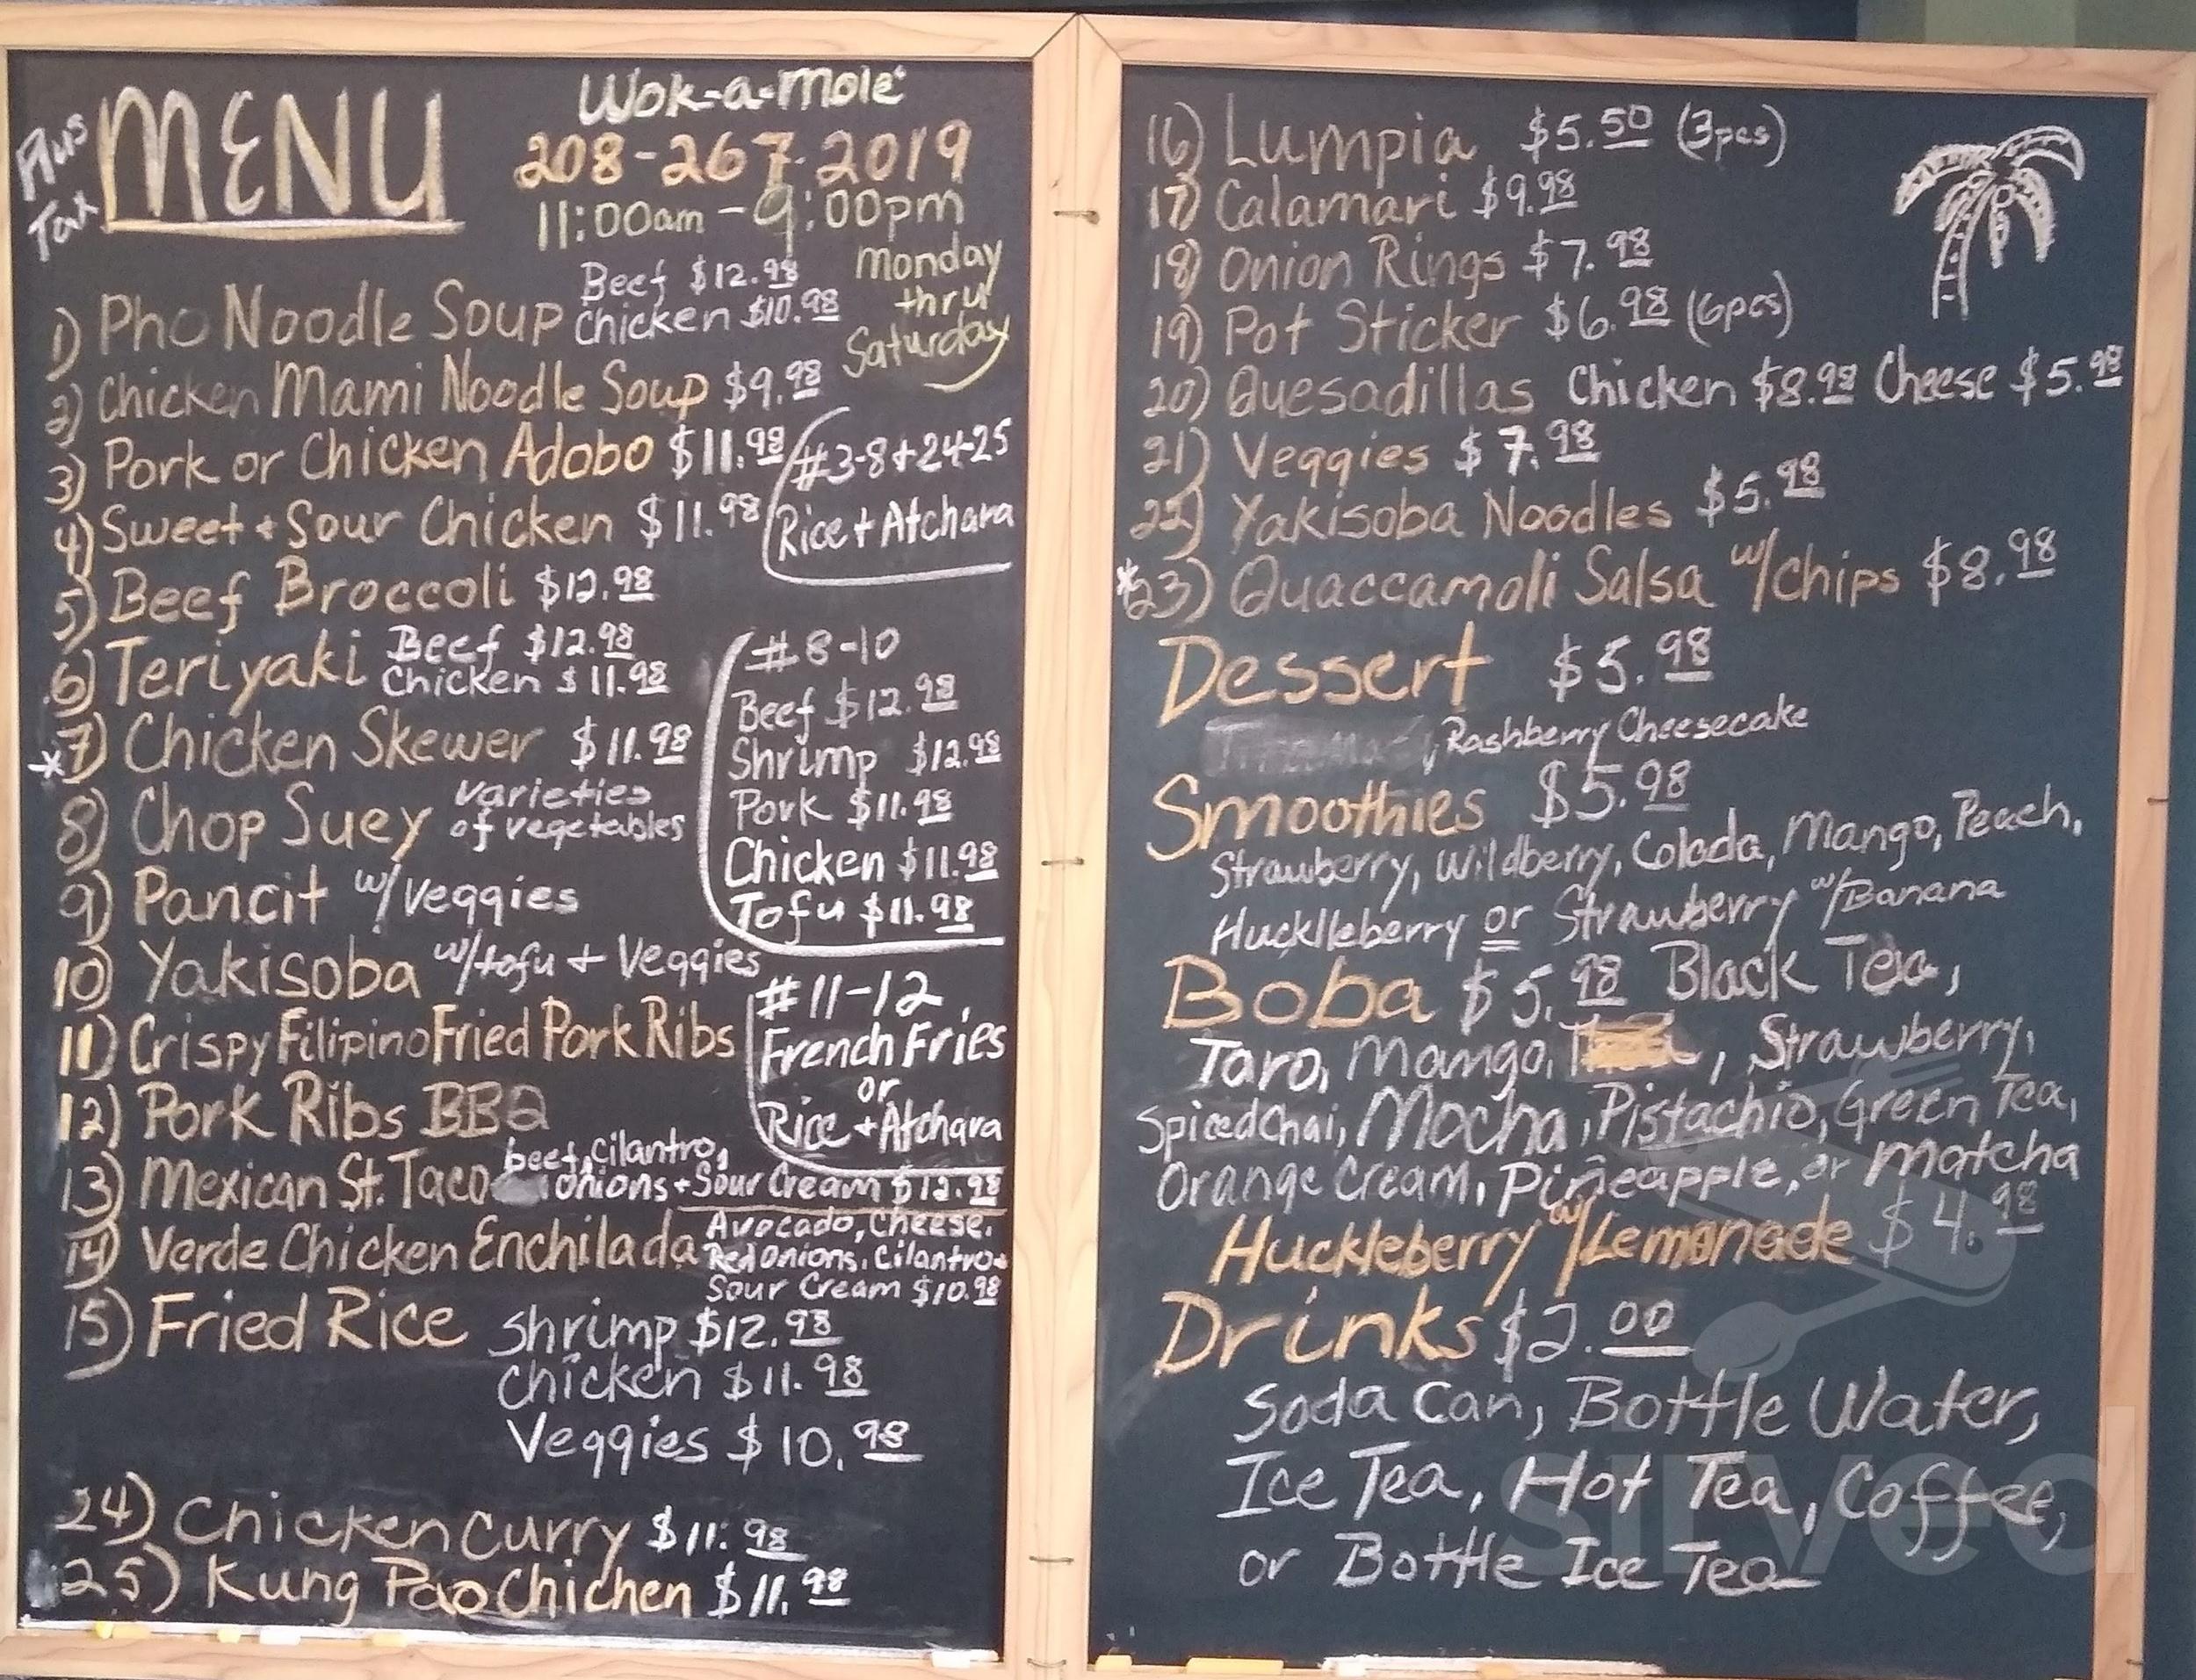 Plus Tax
MENU
Wok-a-mole'
208-267-2019
11:00am - 9:00pm
Monday
thru
Saturday
1) Pho Noodle Soup Beef $12.98
Chicken $10.98
2) Chicken Mami Noodle Soup $9.98
3) Pork or Chicken Adobo $11.98
4) Sweet + Sour Chicken $11.98
#3-8+24-25
Rice + Atchara
5) Beef Broccoli $12.98
6) Teriyaki Beef $12.98
Chicken $11.98
*7) Chicken Skewer $11.98
8) Chop Suey varieties
of vegetables
9) Pancit w/Veggies
10) Yakisoba w/tofu + Veggies
#8-10
Beef $12.98
Shrimp $12.98
Pork $11.98
Chicken $11.98
Tofu $11.98
11) Crispy Filipino Fried Pork Ribs
12) Pork Ribs BBQ
#11-12
French Fries
or
Rice + Atchara
13) Mexican St. Taco beef, Cilantro,
onions + Sour Cream $12.98
14) Verde Chicken Enchilada Avocado, Cheese,
Red Onions, Cilantro +
Sour Cream $10.98
15) Fried Rice Shrimp $12.98
Chicken $11.98
Veggies $10.98
24) Chicken Curry $11.98
25) Kung Pao Chichen $11.98
16) Lumpia $5.50 (3pcs)
17) Calamari $9.98
18) Onion Rings $7.98
19) Pot Sticker $6.98 (6pcs)
20) Quesadillas Chicken $8.98 Cheese $5.98
21) Veggies $7.98
22) Yakisoba Noodles $5.98
*23) Quaccamoli Salsa w/chips $8.98
Dessert $5.98
, Rashberry Cheesecake
Smoothies $5.98
Strawberry, Wildberry, Colada, Mango, Peach,
Hucklleberry or Strawberry w/Banana
Boba $5.98 Black Tea,
Taro, Mango, , Strawberry,
Spiced Chai, Mocha, Pistachio, Green Tea,
Orange Cream, Pineapple, or Matcha
Huckleberry w/Lemonade $4.98
Drinks $2.00
Soda Can, Bottle Water,
Ice Tea, Hot Tea, Coffee,
or Bottle Ice Tea
sirved